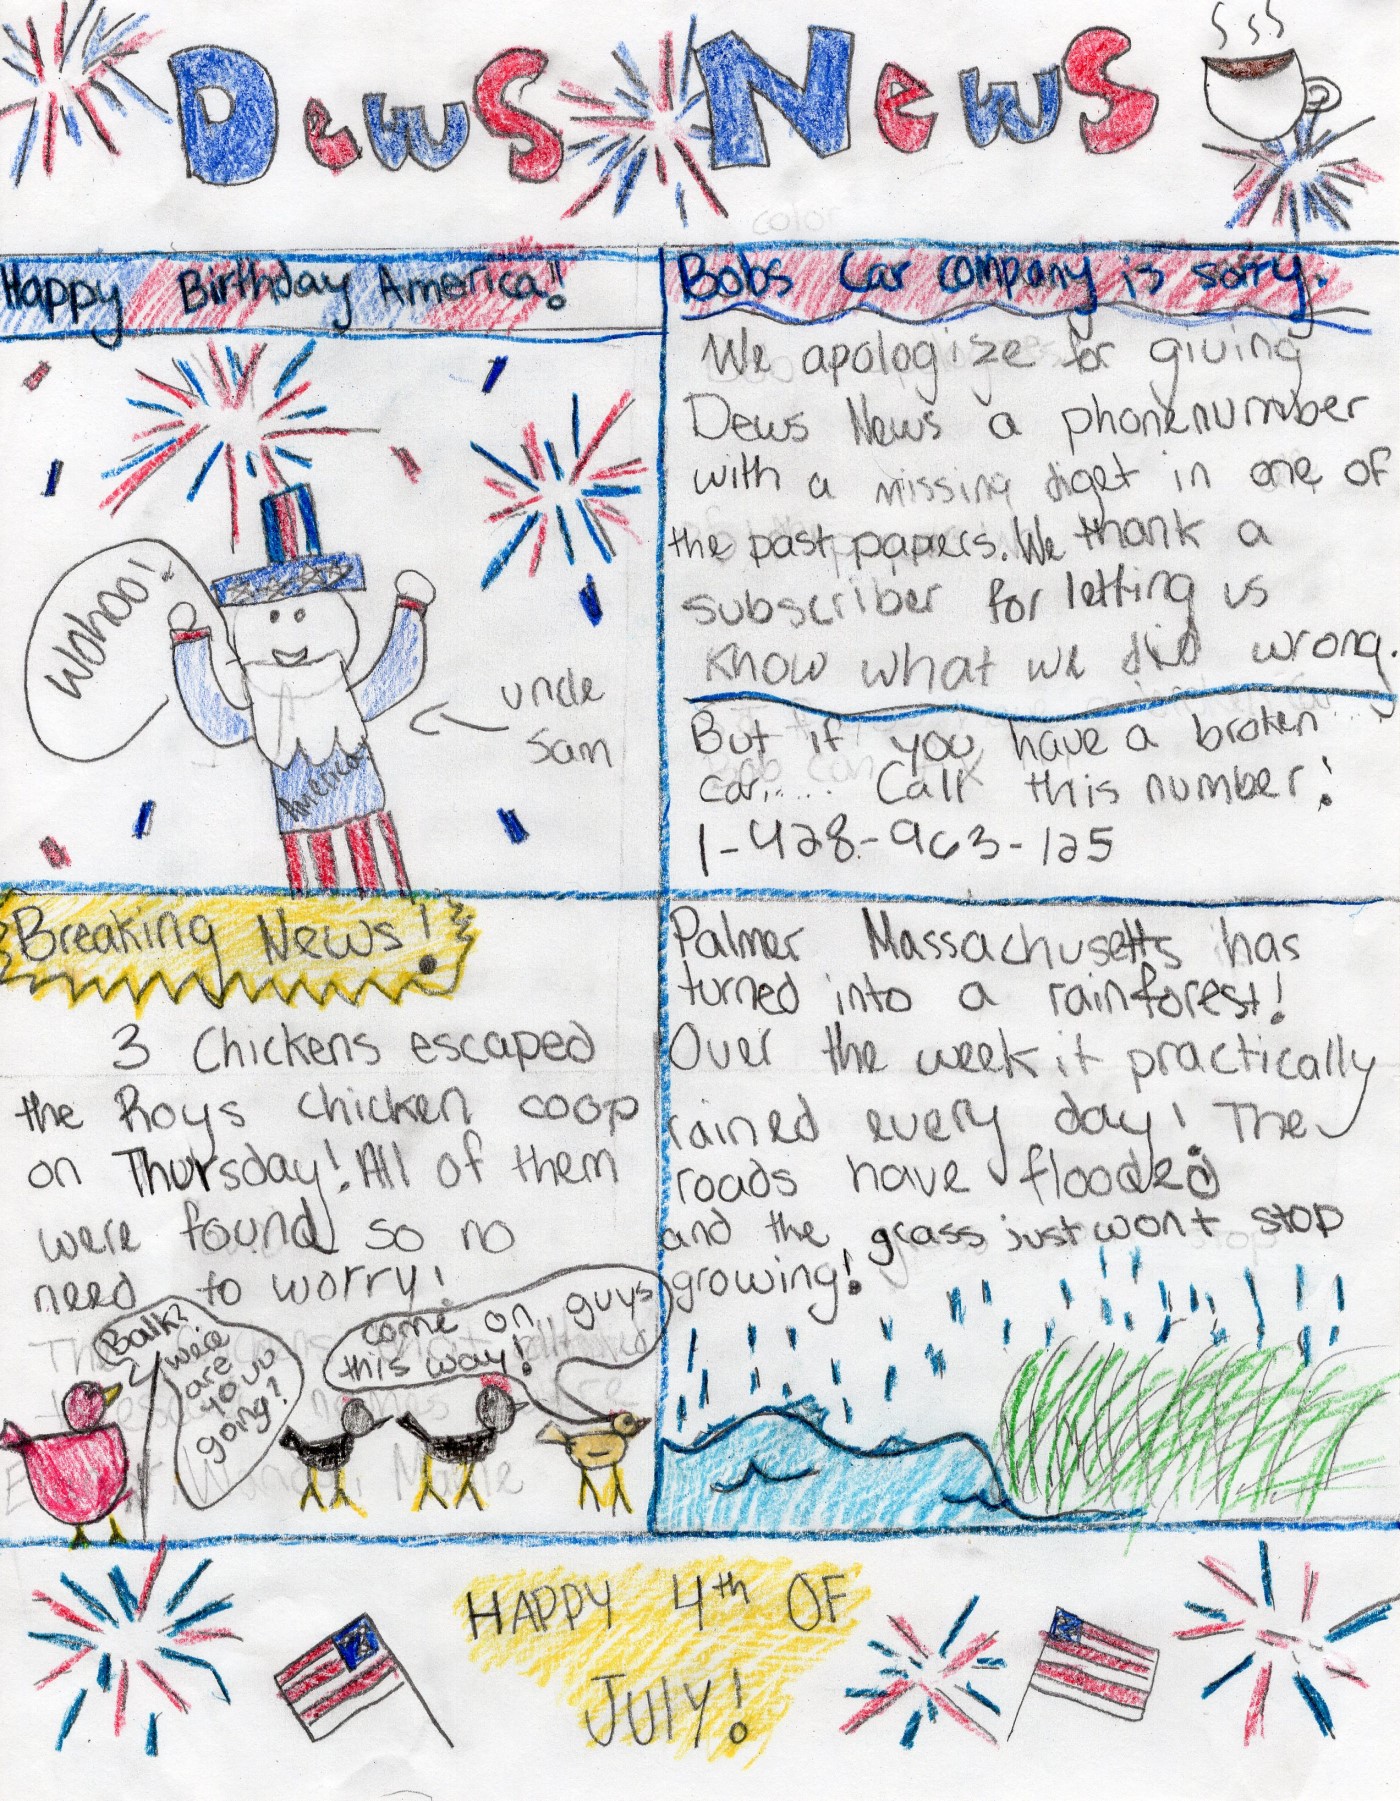 Dews News
Happy Birthday America!!
Wohoo!
uncle
Sam
America
Bobs Car company is sorry.
We apologize for giving
Dews News a phonenumber
with a missing diget in one of
the past papers. We thank a
subscriber for letting us
know what we did wrong.
But if you have a broken
car...... Call this number!
1-428-963-125
Breaking News!
3 Chickens escaped
the Roys chicken coop
on Thursday! All of them
were found so no
need to worry!
Balk?
were
are
you
going?
come on, guys
this way!
Palmer Massachusetts has
turned into a rainforest!
Over the week it practically
rained every day! The
roads have flooded
and the grass just wont stop
growing!
HAPPY 4th OF
JULY!